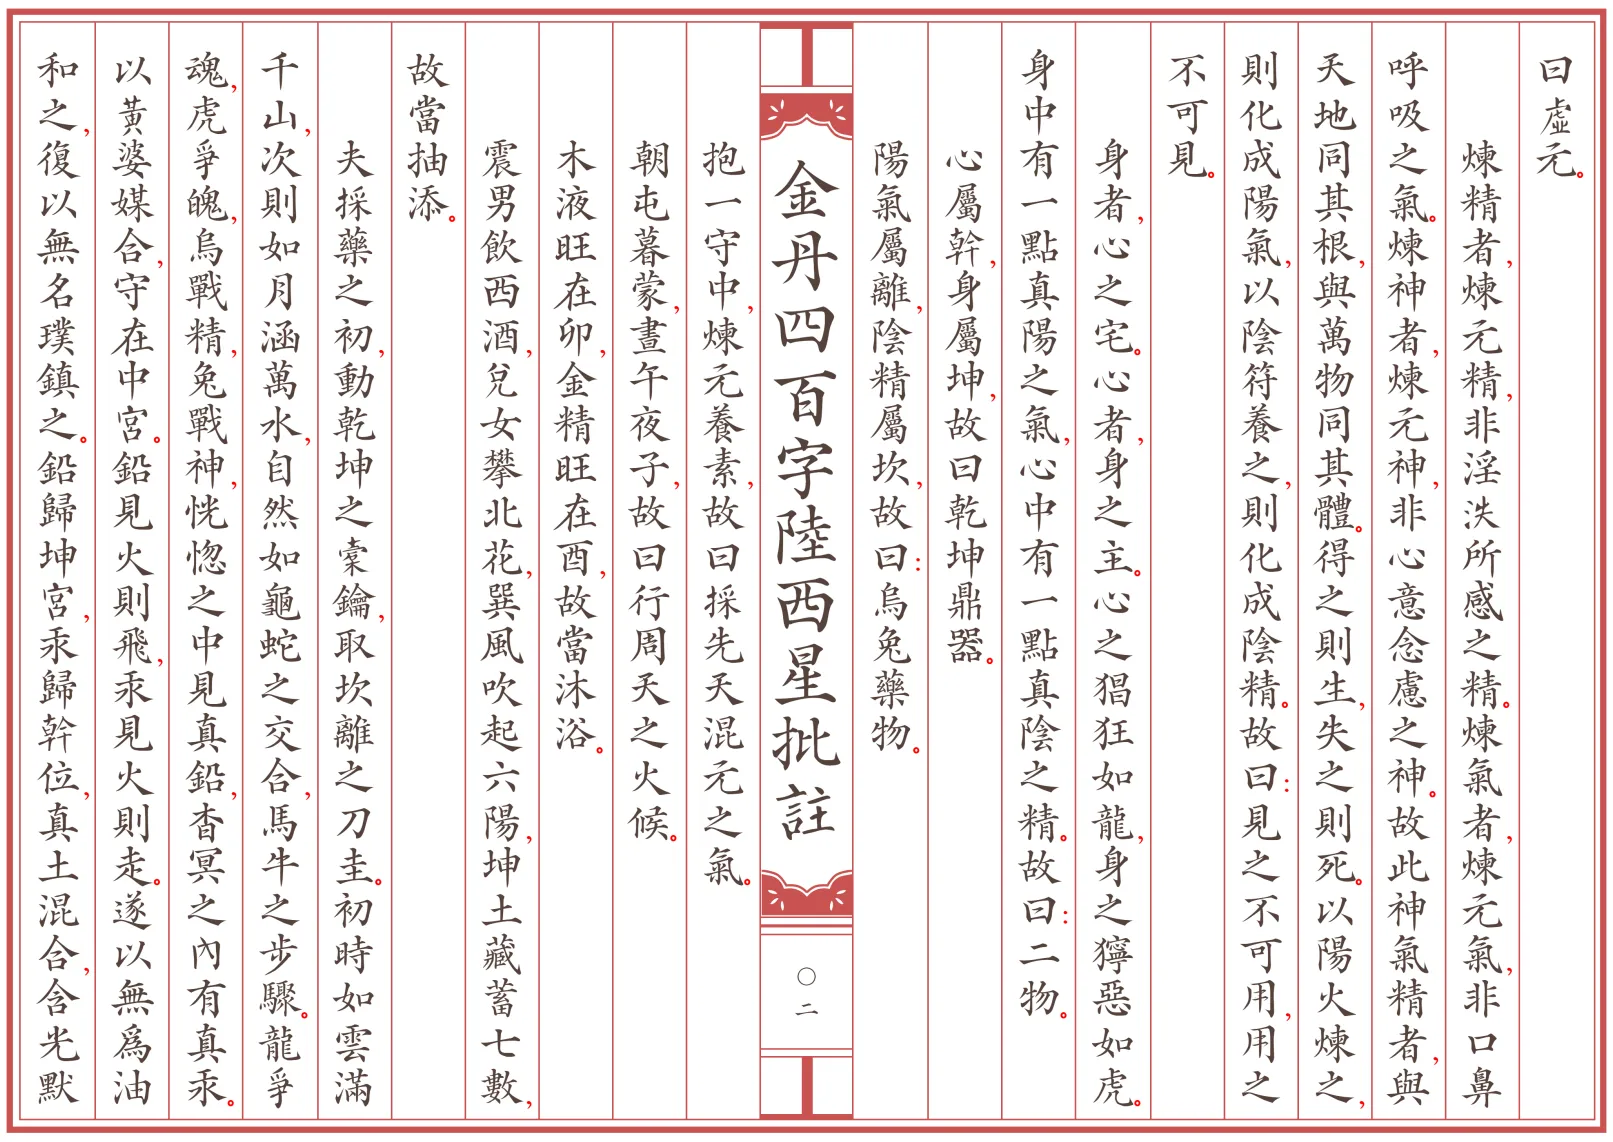 曰虛元。
煉精者，煉元精，非淫泆所感之精。煉氣者，煉元氣，非口鼻
呼吸之氣。煉神者，煉元神，非心意念慮之神。故此神氣精者，與
天地同其根，與萬物同其體。得之則生，失之則死。以陽火煉之，
則化成陽氣，以陰符養之，則化成陰精。故曰：見之不可用，用之
不可見。
身者，心之宅。心者，身之主。心之猖狂如龍，身之獰惡如虎。
身中有一點真陽之氣，心中有一點真陰之精。故曰：二物。
心屬幹，身屬坤，故曰乾坤鼎器。
陽氣屬離，陰精屬坎，故曰：烏兔藥物。
金丹四百字陸西星批註
〇二
抱一守中，煉元養素，故曰採先天混元之氣。
朝屯暮蒙，晝午夜子，故曰行周天之火候。
木液旺在卯，金精旺在酉，故當沐浴。
震男飲西酒，兌女攀北花，巽風吹起六陽，坤土藏蓄七數，
故當抽添。
夫採藥之初，動乾坤之橐鑰，取坎離之刀圭。初時如雲滿
千山，次則如月涵萬水，自然如龜蛇之交合，馬牛之步驟。龍爭
魂，虎爭魄，烏戰精，兔戰神，恍惚之中見真鉛，杳冥之內有真汞。
以黃婆媒合，守在中宮。鉛見火則飛，汞見火則走。遂以無為油
和之，復以無名璞鎮之。鉛歸坤宮，汞歸幹位，真土混合，含光默